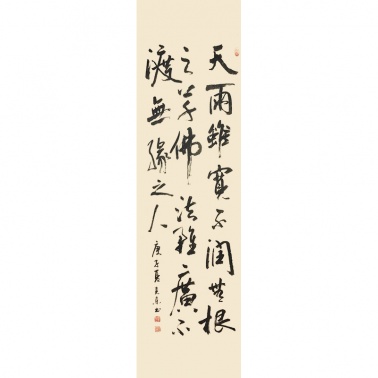 天雨雖寬不潤無根
之草佛法雖廣不
渡無緣之人
庚子夏